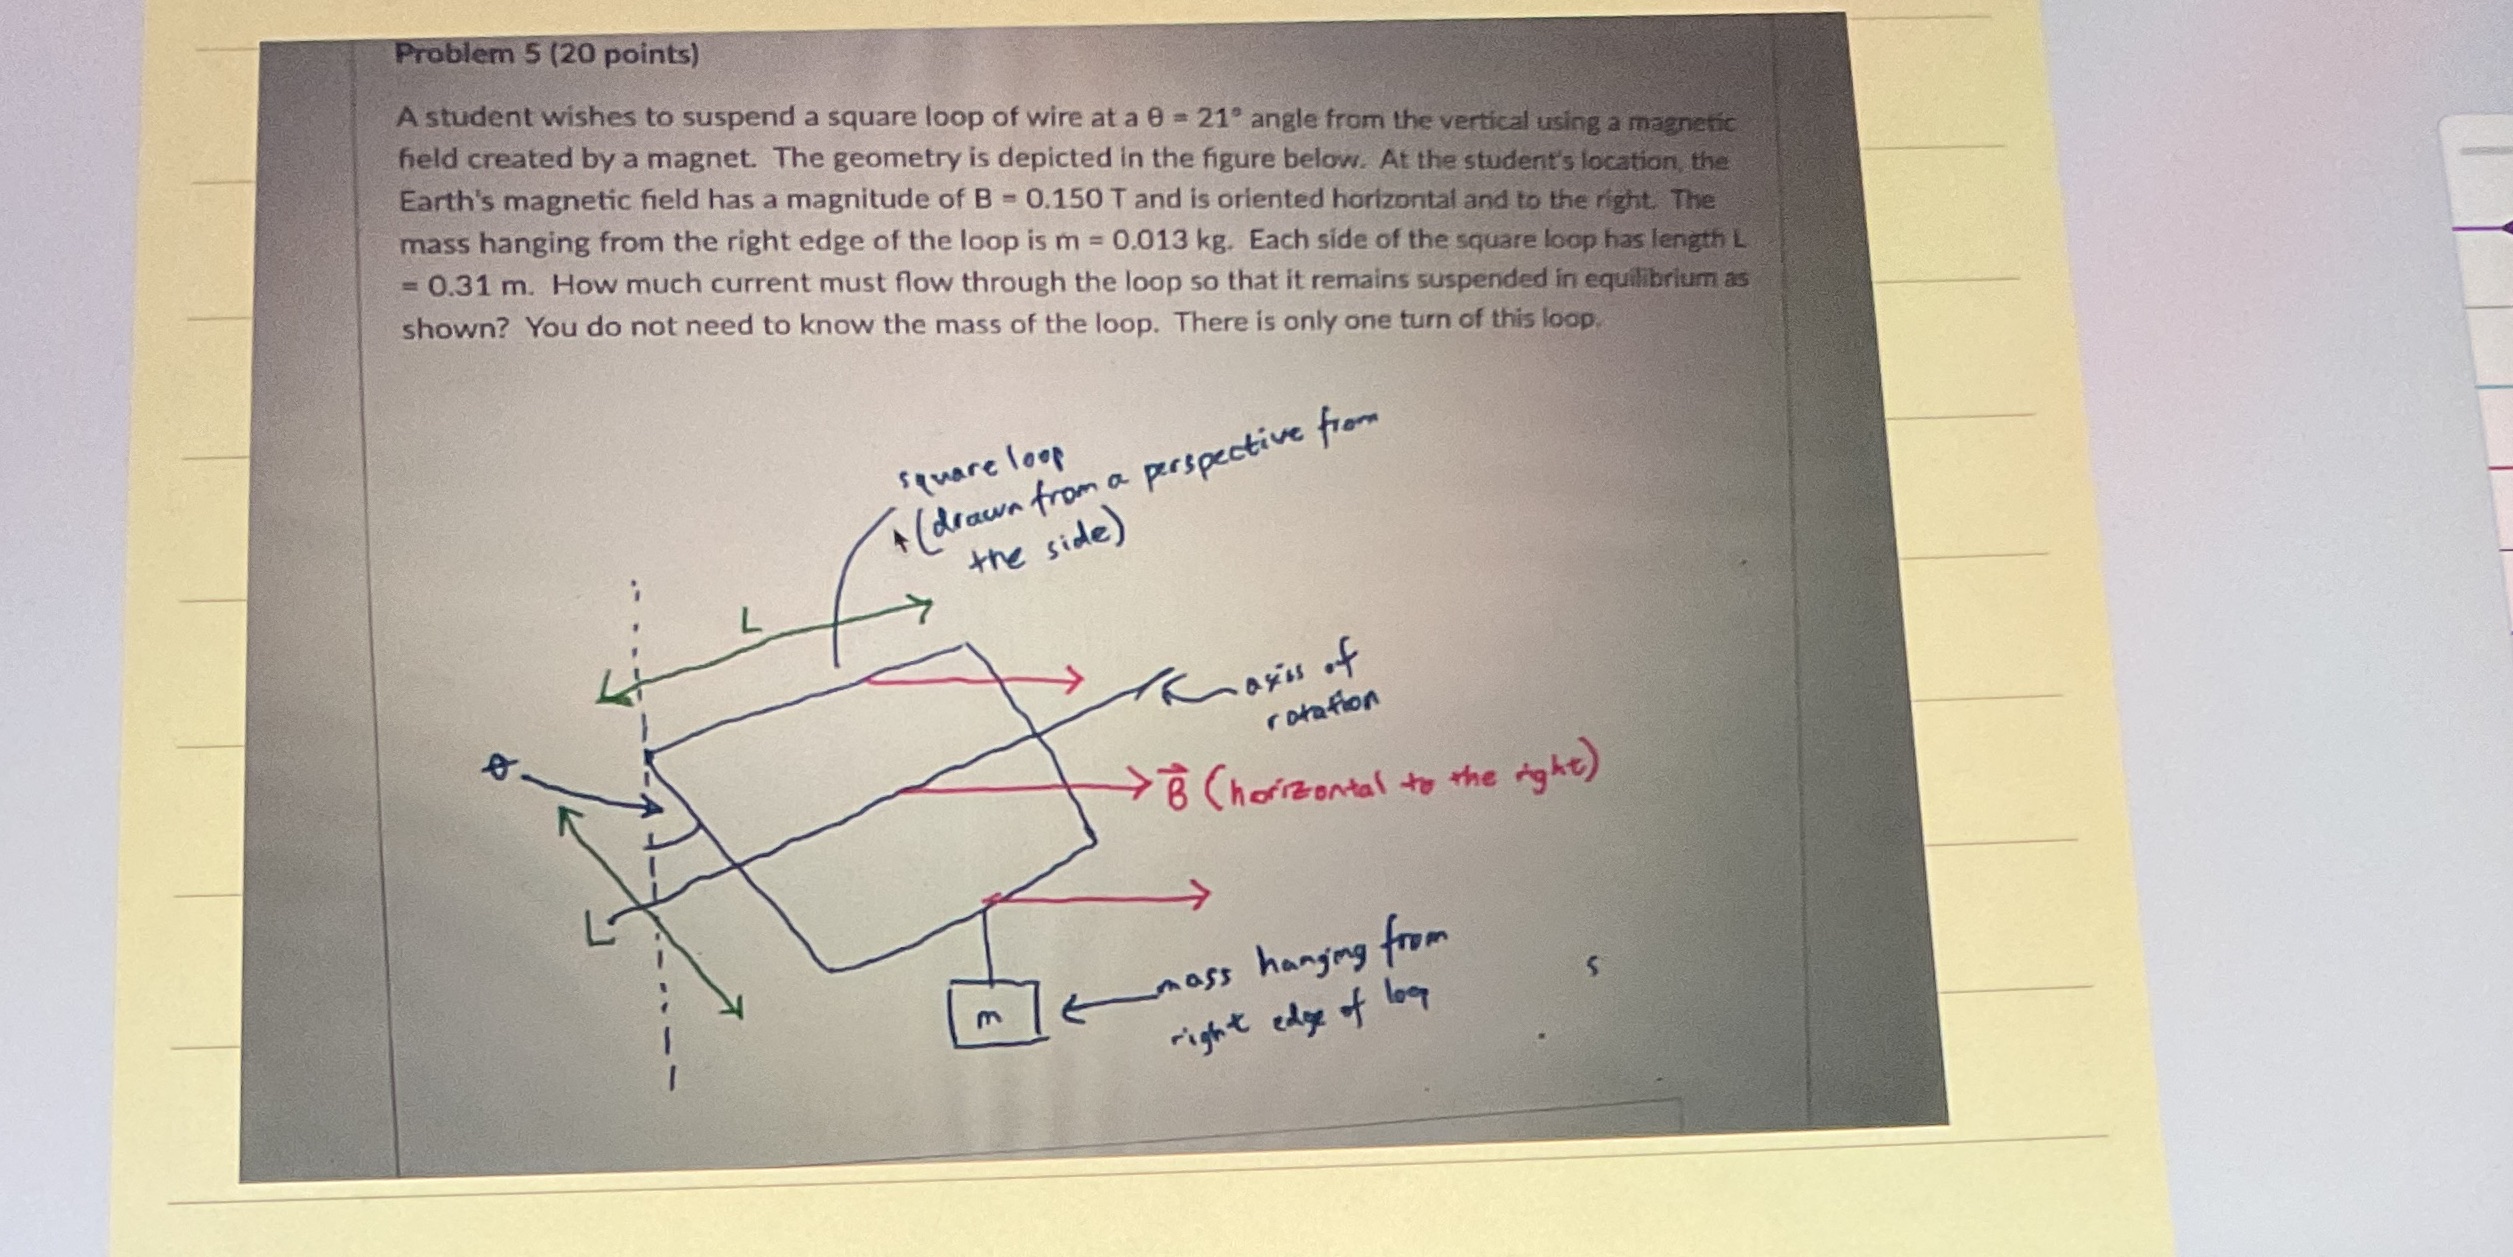 Problem 5 (20 points)
A student wishes to suspend a square loop of wire at a θ = 21° angle from the vertical using a magnetic
field created by a magnet. The geometry is depicted in the figure below. At the student's location, the
Earth's magnetic field has a magnitude of B = 0.150 T and is oriented horizontal and to the right. The
mass hanging from the right edge of the loop is m = 0.013 kg. Each side of the square loop has length L
= 0.31 m. How much current must flow through the loop so that it remains suspended in equilibrium as
shown? You do not need to know the mass of the loop. There is only one turn of this loop.
square loop
(drawn from a perspective from
the side)
L
axis of
rotation
θ
B⃗ (horizontal to the right)
L
mass hanging from
right edge of loop
s
m